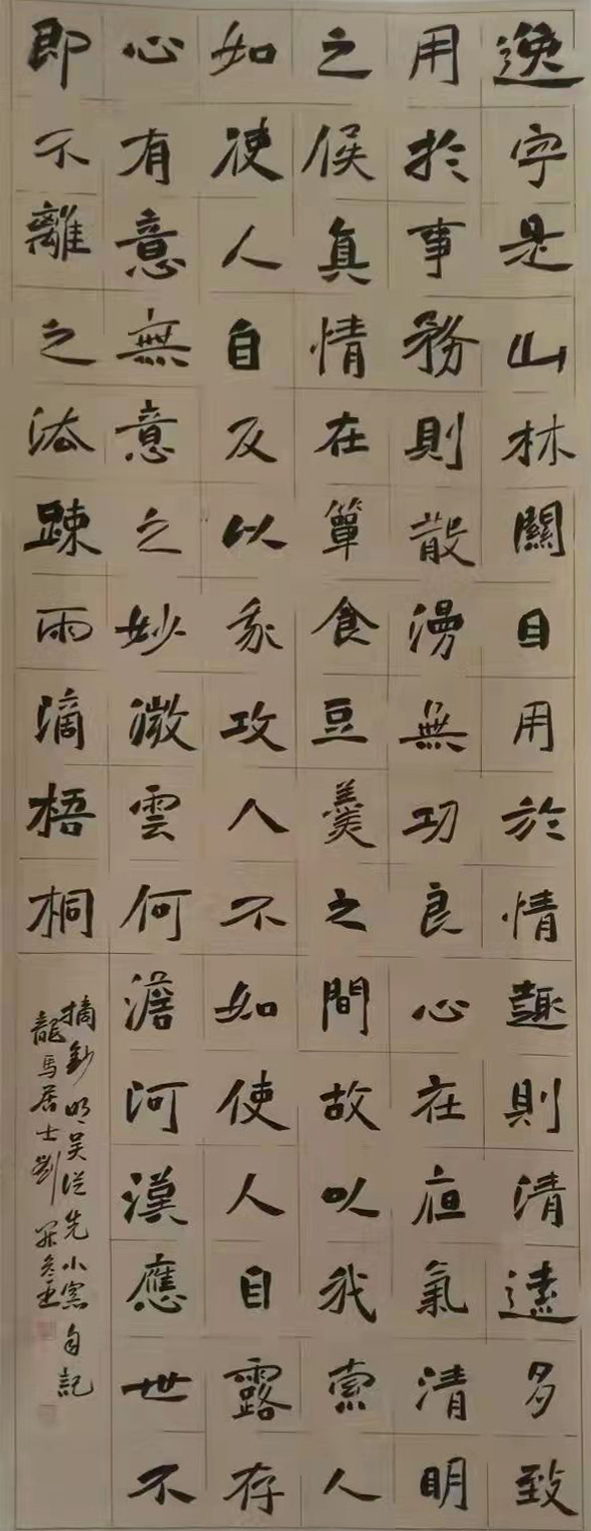 逸字是山林關目用於情趣則清遠多致
用於事務則散漫無功良心在夜氣清明
之候真情在簞食豆羹之間故以我索人
如使人自反以我攻人不如使人自露存
心有意無意之妙微雲何澹河漢應世不
即不離之法疎雨滴梧桐
摘鈔明吳從先小窗自記
龍馬居士劉